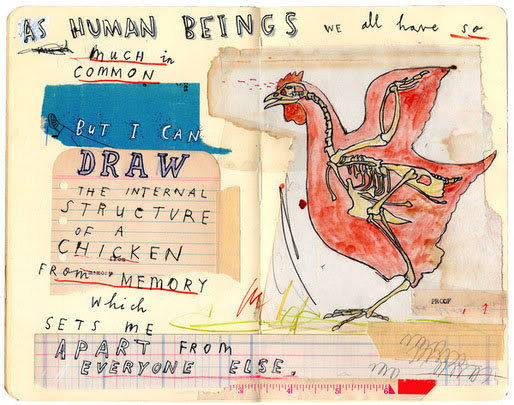 AS HUMAN BEINGS WE all have so
MUCH in
COMMON
BUT I CAN
DRAW
THE INTERNAL
STRUCTURE
OF A
CHICKEN
FROM MEMORY
Which
SETS ME
APART FROM
EVERYONE ELSE,
PROOF